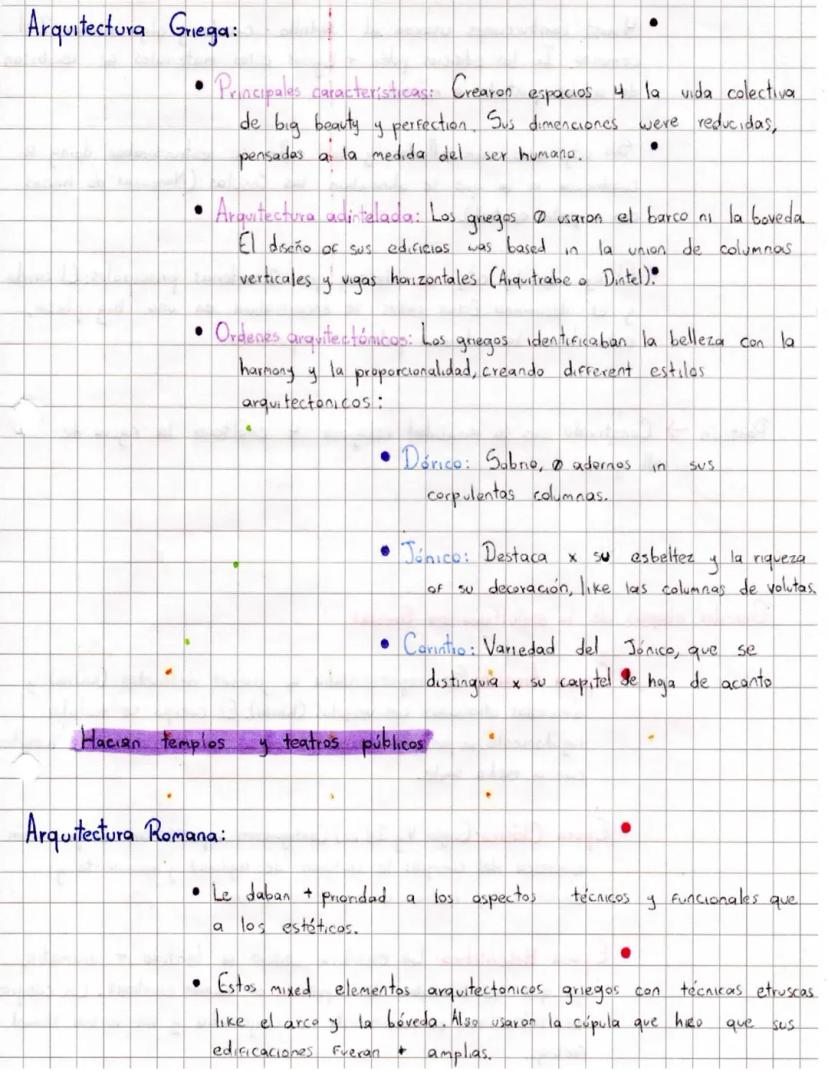 Arquitectura Griega:
• Principales características: Crearon espacios 4 la vida colectiva
de big beauty y perfection. Sus dimenciones were reducidas,
pensadas a la medida del ser humano.
• Arquitectura adintelada: Los griegos Ø usaron el barco ni la boveda
El diseño of sus edificios was based in la union de columnas
verticales y vigas horizontales (Arquitrabe o Dintel).
• Ordenes arquitectónicos: Los griegos identificaban la belleza con la
harmony y la proporcionalidad, creando different estilos
arquitectonicos:
• Dórico: Sobrio, Ø adornos in sus
corpulentas columnas.
• Jónico: Destaca x su esbeltez y la riqueza
of su decoración, like las columnas de volutas.
• Corintio: Variedad del Jónico, que se
distinguia x su capitel de hoja de acanto
Hacian templos y teatros públicos
Arquitectura Romana:
• Le daban + prioridad a los aspectos técnicos y funcionales que
a los estéticos.
• Estos mixed elementos arquitectonicos griegos con técnicas etruscas
like el arco y la bóveda. Also usaron la cúpula que hizo que sus
edificaciones fueran + amplias.